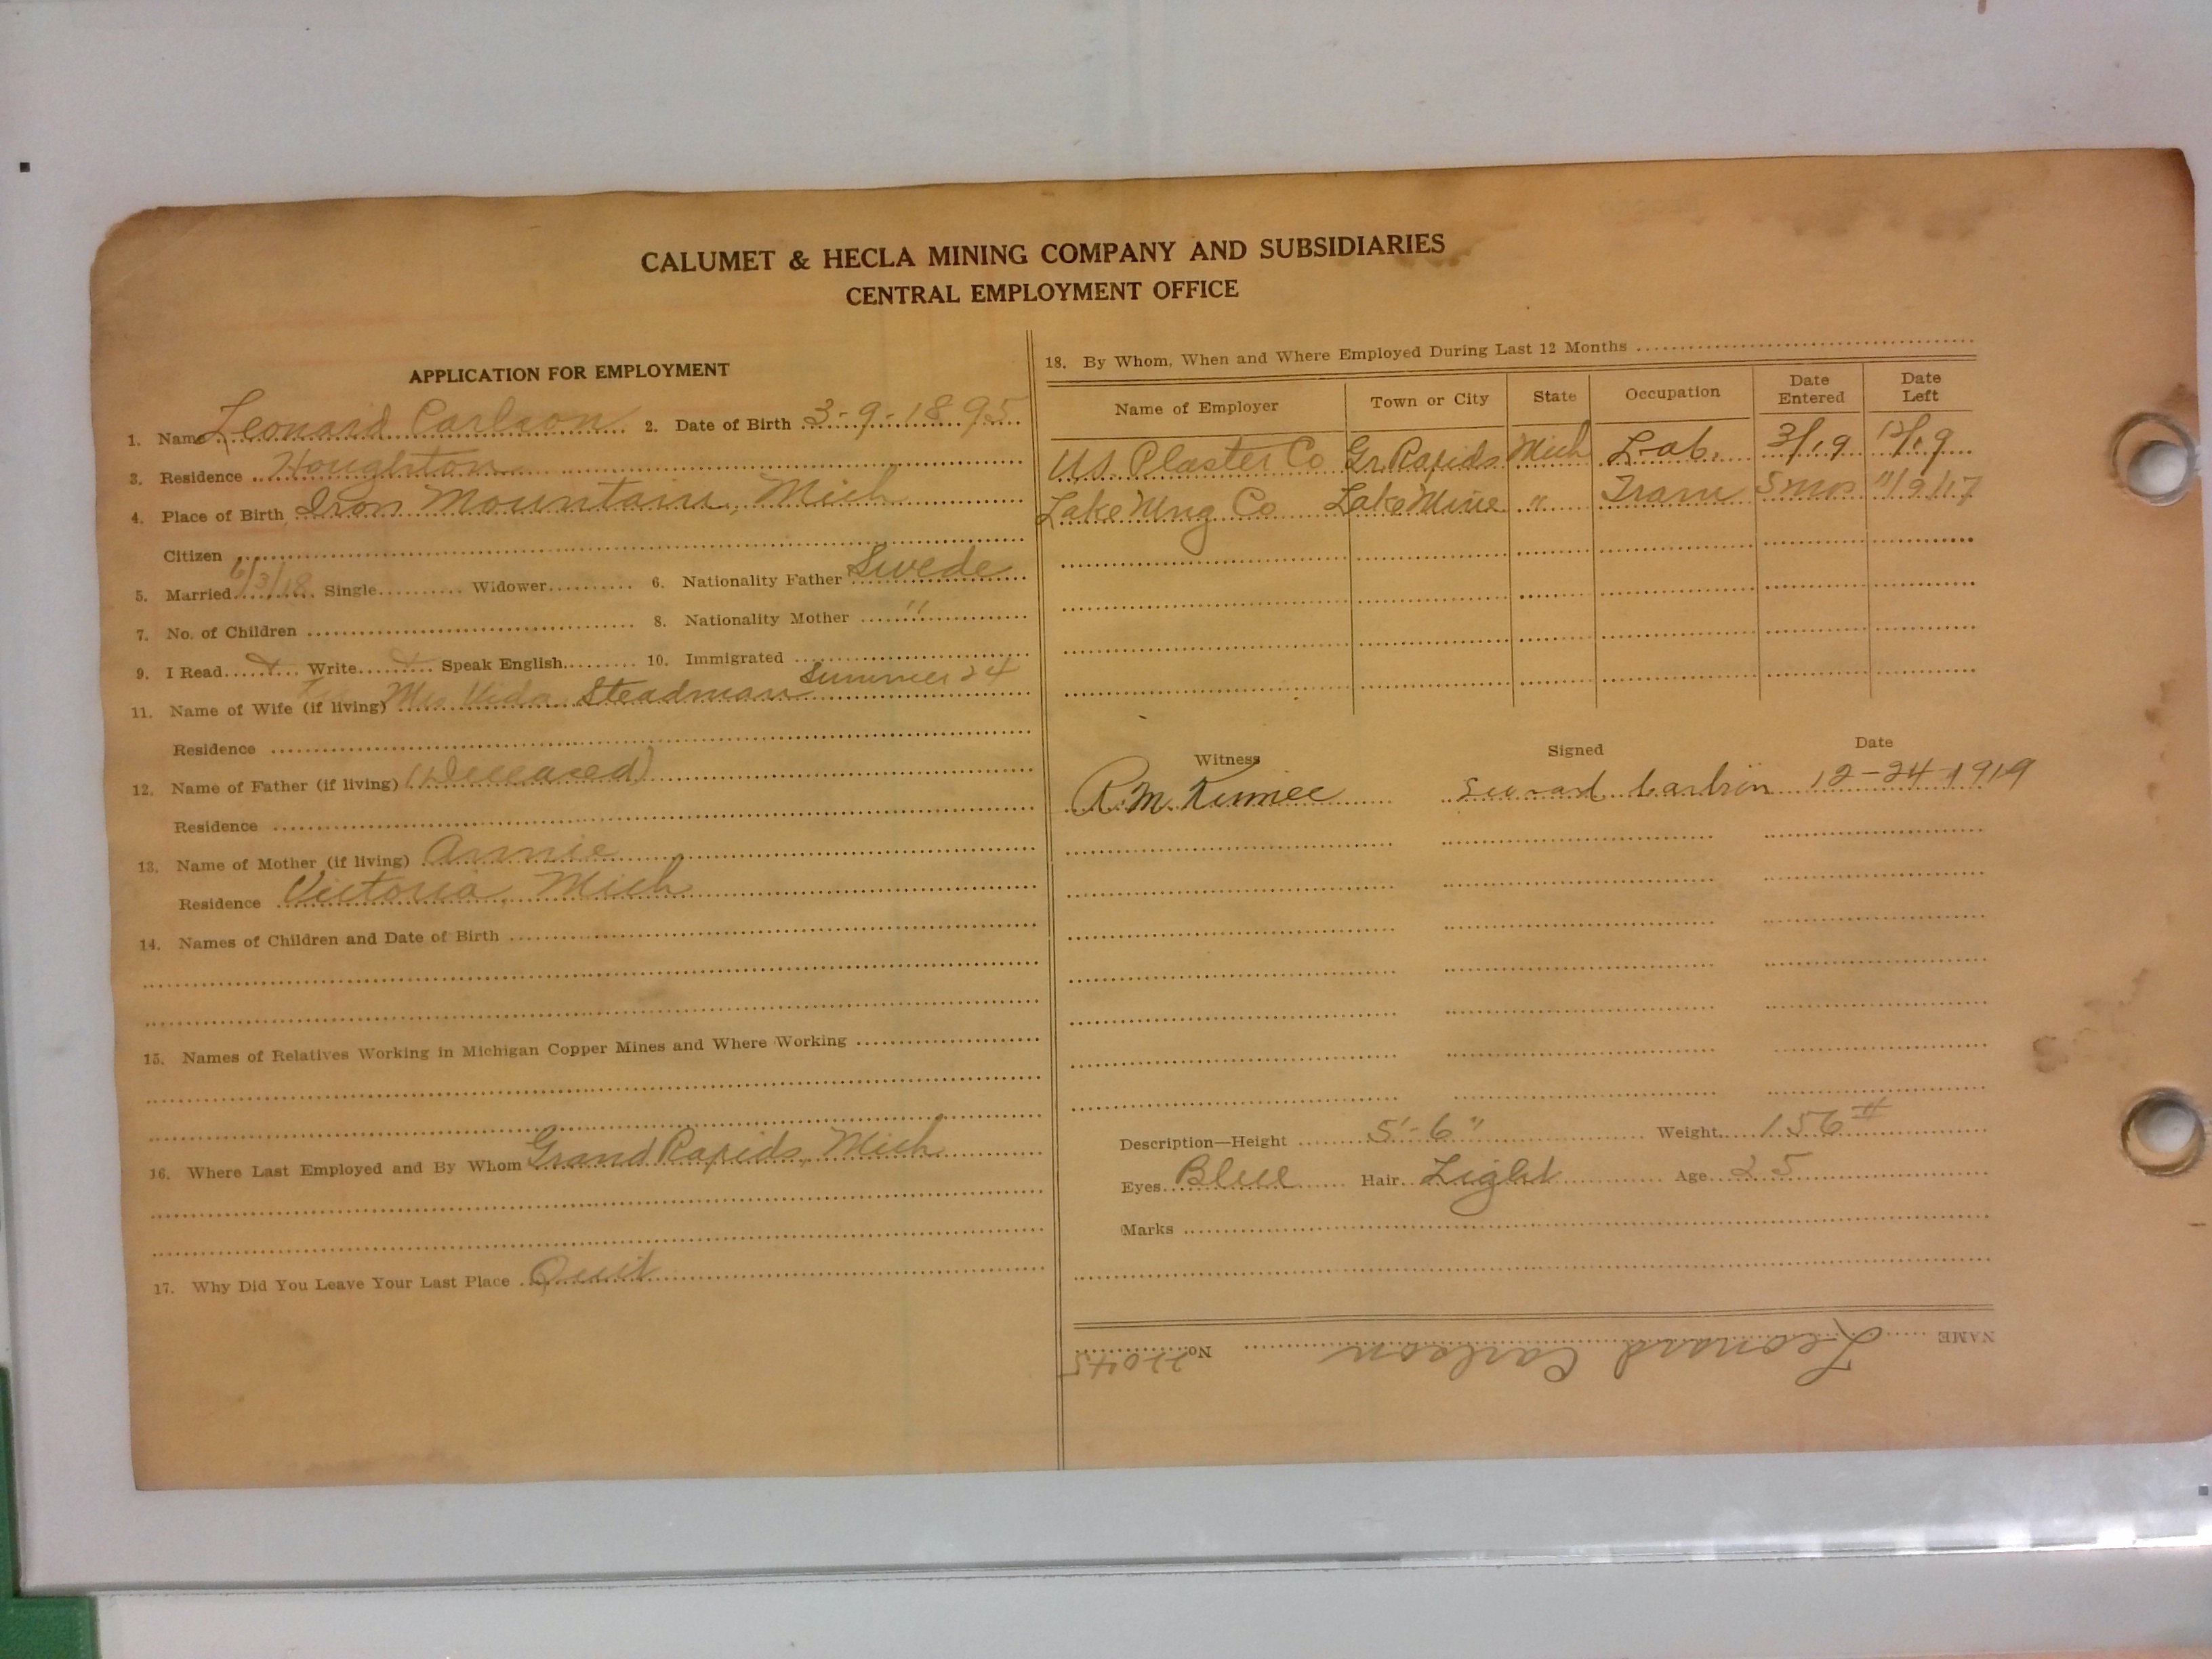 CALUMET & HECLA MINING COMPANY AND SUBSIDIARIES
CENTRAL EMPLOYMENT OFFICE
APPLICATION FOR EMPLOYMENT
1. Name Leonard Carlson 2. Date of Birth 3-9-1895
3. Residence Houghton
4. Place of Birth Iron Mountain, Mich
Citizen
5. Married 6/3/18 Single Widower 6. Nationality Father Swede
7. No. of Children 8. Nationality Mother "
9. I Read Write Speak English 10. Immigrated
Summer 24
11. Name of Wife (if living) Mrs Steadman
Residence
12. Name of Father (if living) (Deceased)
Residence
13. Name of Mother (if living) Annie
Residence Victoria, Mich
14. Names of Children and Date of Birth
15. Names of Relatives Working in Michigan Copper Mines and Where Working
16. Where Last Employed and By Whom Grand Rapids, Mich
17. Why Did You Leave Your Last Place Quit
18. By Whom, When and Where Employed During Last 12 Months
Name of Employer Town or City State Occupation Date Entered Date Left
U.S. Plaster Co Gr. Rapids Mich Lab. 3/19 12/19
Lake Mng Co Lake Mine " Tram 5 mos 11/9/17
Witness Signed Date
Carlson 12-24-1919
Description—Height 5'-6" Weight 156#
Eyes Blue Hair Light Age 25
Marks
NAME Leonard Carlson No. 22045